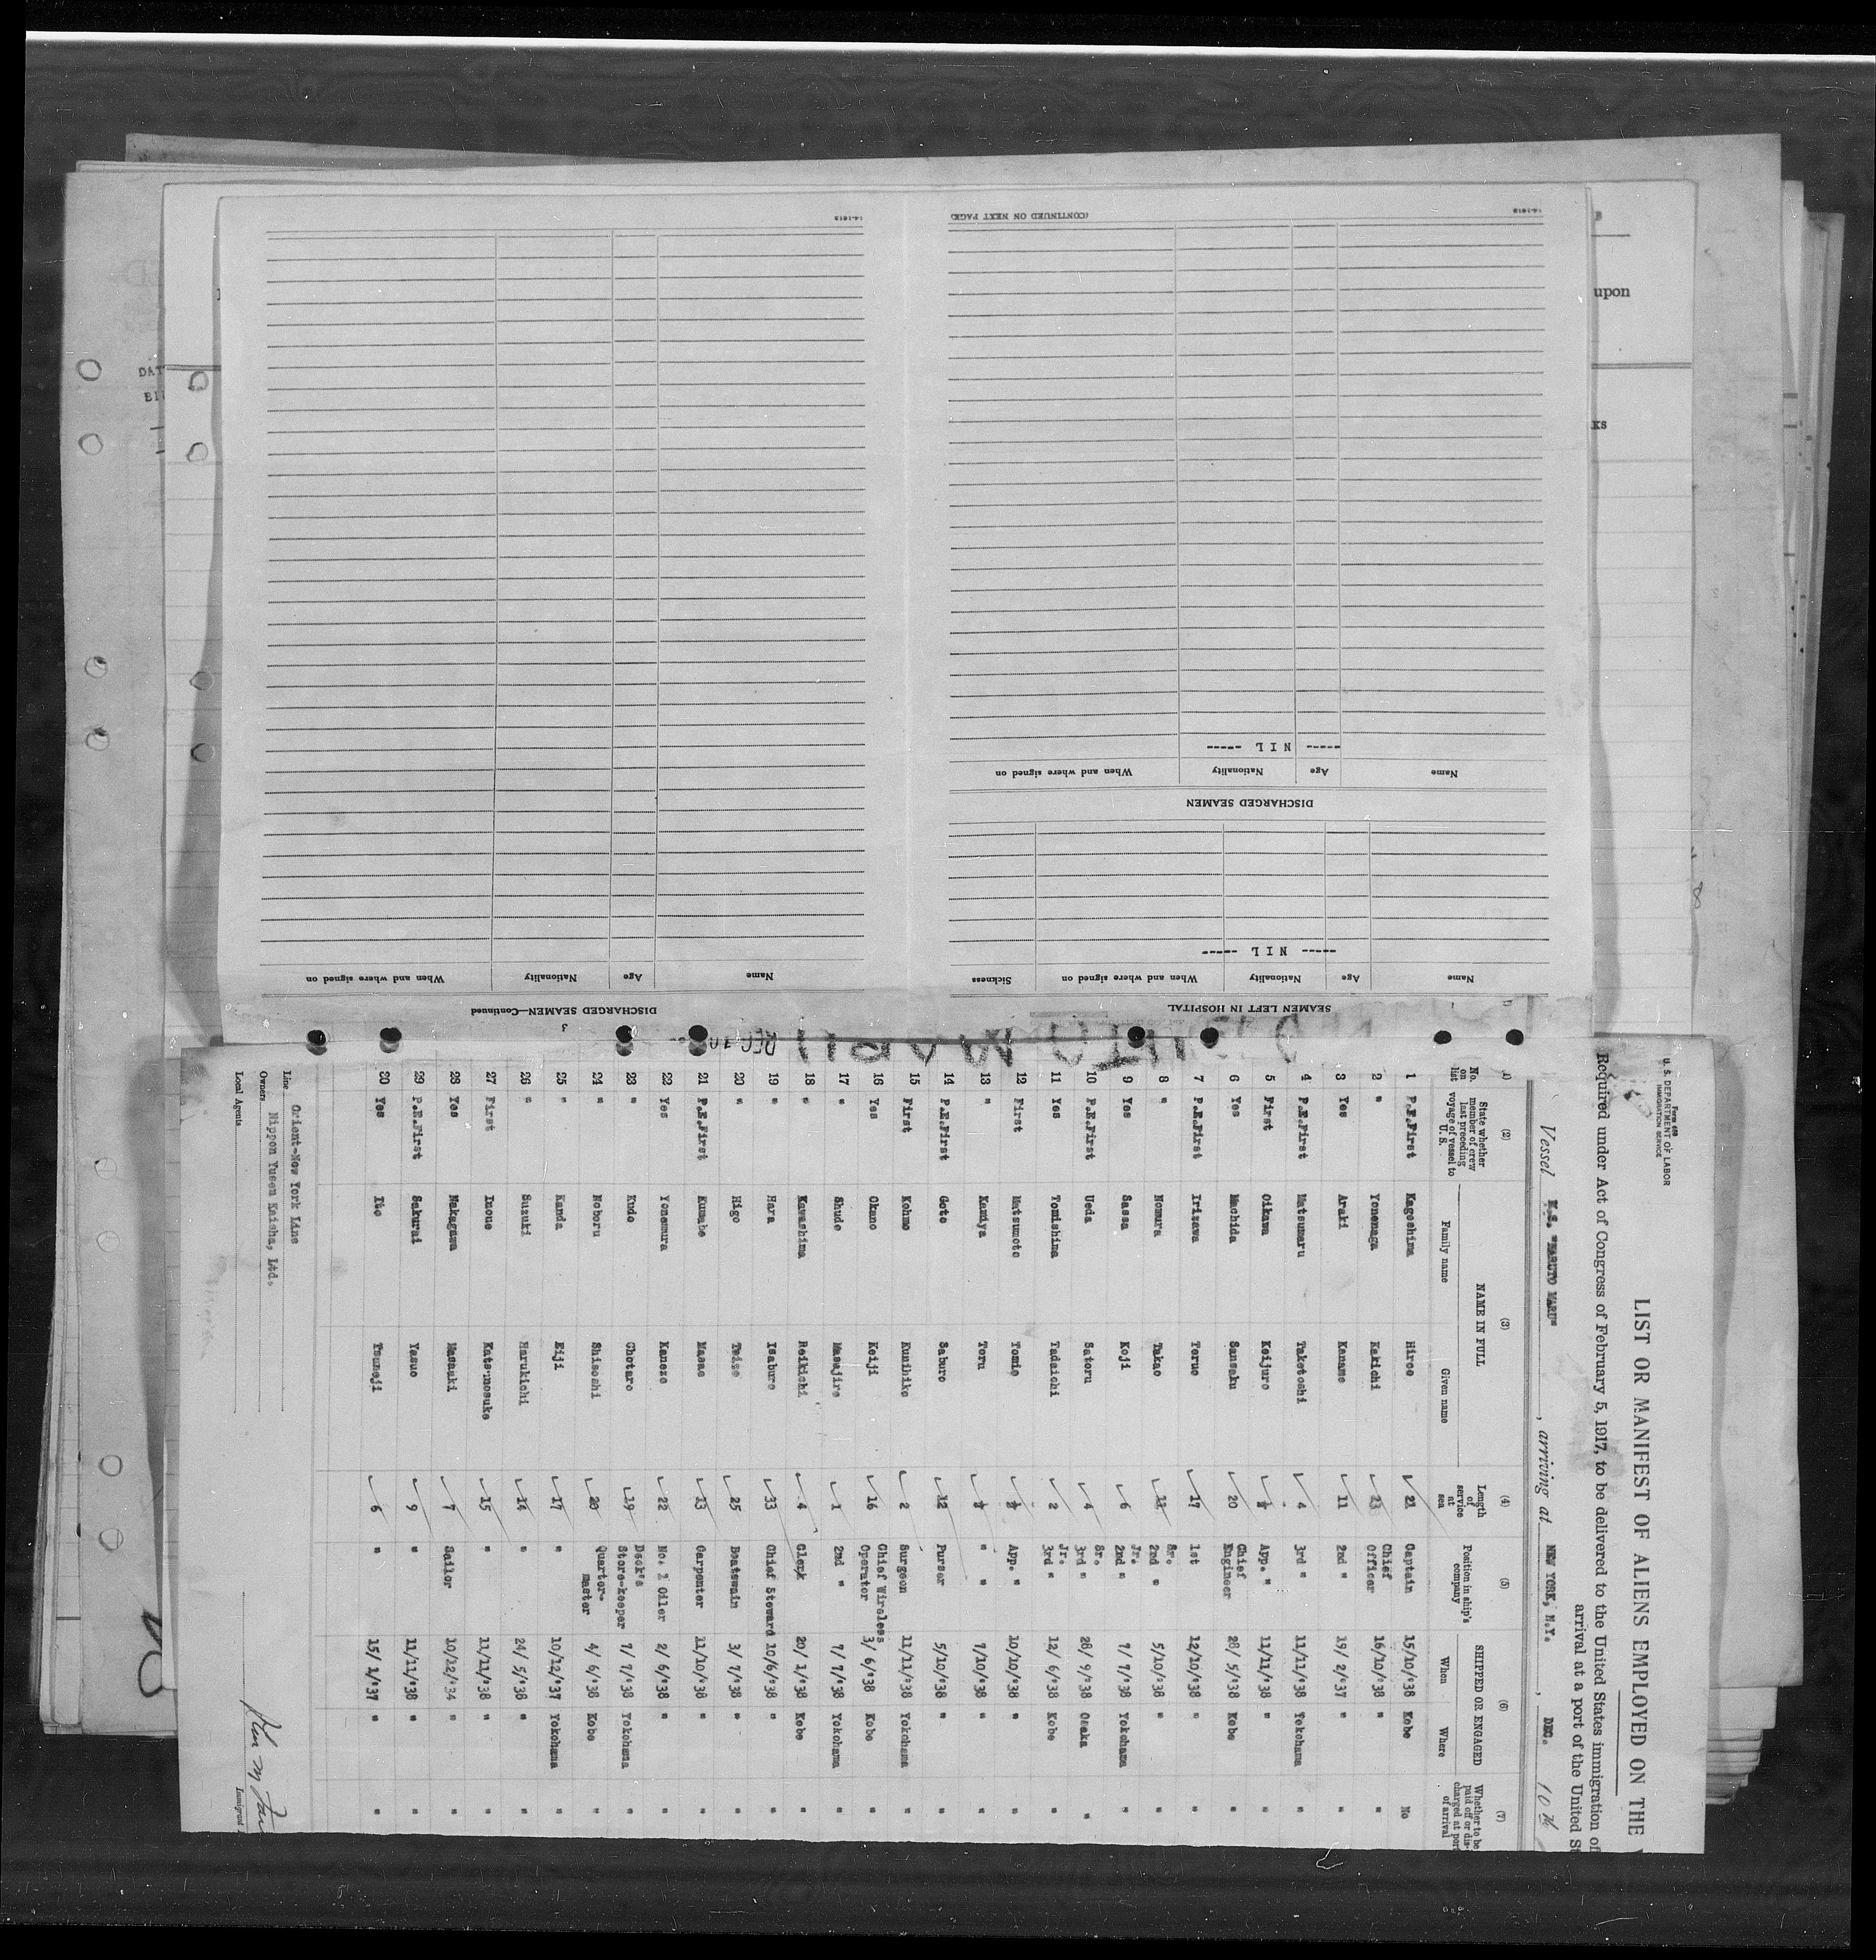 14-1613
(CONTINUED ON NEXT PAGE)
14-1613
----- NIL -----
Name Age Nationality When and where signed on
DISCHARGED SEAMEN
----- NIL -----
Name Age Nationality When and where signed on Sickness
SEAMEN LEFT IN HOSPITAL
Name Age Nationality When and where signed on
DISCHARGED SEAMEN—Continued
3
upon
ks
DAT
Form 689
U. S. DEPARTMENT OF LABOR
IMMIGRATION SERVICE
LIST OR MANIFEST OF ALIENS EMPLOYED ON THE
Required under Act of Congress of February 5, 1917, to be delivered to the United States immigration of
arrival at a port of the United St
Vessel M.S. "NARUTO MARU", arriving at NEW YORK, N.Y., DEC. 10th
(2) (3) (4) (5) (6) (7)
No. on list State whether member of crew last preceding voyage of vessel to U. S. NAME IN FULL Family name Given name Length of service at sea Position in ship's company SHIPPED OR ENGAGED When Where Whether to be paid off or discharged at port of arrival
1 P.E.First Kagoshima Hiroo 21 Captain 15/10/'38 Kobe No
2 " Yonenaga Kakichi 23 Chief Officer 16/10/'38 " "
3 Yes Araki Kaname 11 2nd " 19/ 2/'37 " "
4 P.E.First Matsumaru Taketoshi 4 3rd " 11/11/'38 Yokohama "
5 First Oikawa Keijuro App. " 11/11/'38 " "
6 Yes Machida Sansaku 20 Chief Engineer 28/ 5/'38 Kobe "
7 P.E.First Irizawa Teruo 17 1st 12/10/'38 " "
8 " Nomura Takao Sr. 2nd " 5/10/'38 " "
9 Yes Sassa Koji 6 Jr. 2nd " 7/ 7/'38 Yokohama "
10 P.E.First Ueda Satoru 4 Sr. 3rd " 28/ 9/'38 Osaka "
11 Yes Tomishima Tadaichi 2 Jr. 3rd " 12/ 6/'38 Kobe "
12 First Matsumoto Tomio App. " 10/10/'38 " "
13 " Kamiya Toru " " 7/10/'38 " "
14 P.E.First Goto Saburo 12 Purser 5/10/'38 " "
15 First Kohmo Kunihiko 2 Surgeon 11/11/'38 Yokohama "
16 Yes Okano Keiji 16 Chief Wireless Operator 3/ 6/'38 Kobe "
17 " Shudo Masajiro 1 2nd " 7/ 7/'38 Yokohama "
18 " Kawashima Reikichi 4 Clerk 20/ 1/'38 Kobe "
19 " Hara Isaburo 33 Chief Steward 10/6/'38 " "
20 " Higo 25 Boatswain 3/ 7/'38 " "
21 P.E.First Kumabe Masao 13 Carpenter 11/10/'38 " "
22 Yes Yonemura Kanezo 22 No. 1 Oiler 2/ 6/'38 " "
23 " Kudo Chotaro 19 Deck's Store-keeper 7/ 7/'38 Yokohama "
24 " Noboru Shisoshi 20 Quarter-master 4/ 6/'38 Kobe "
25 " Kanda Eiji 17 " 10/12/'37 Yokohama "
26 " Suzuki Harukichi 14 " 24/ 5/'38 " "
27 First Inoue Katsunosuke 15 " 11/11/'38 " "
28 Yes Nakagawa Masaaki 7 Sailor 10/12/'34 " "
29 P.E.First Sakurai Yasuo 9 " 11/11/'38 " "
30 Yes Ito Tsuneji 6 " 15/ 1/'37 " "
Line Orient-New York Line
Owners Nippon Yusen Kaisha, Ltd.
Local Agents
Immigrant